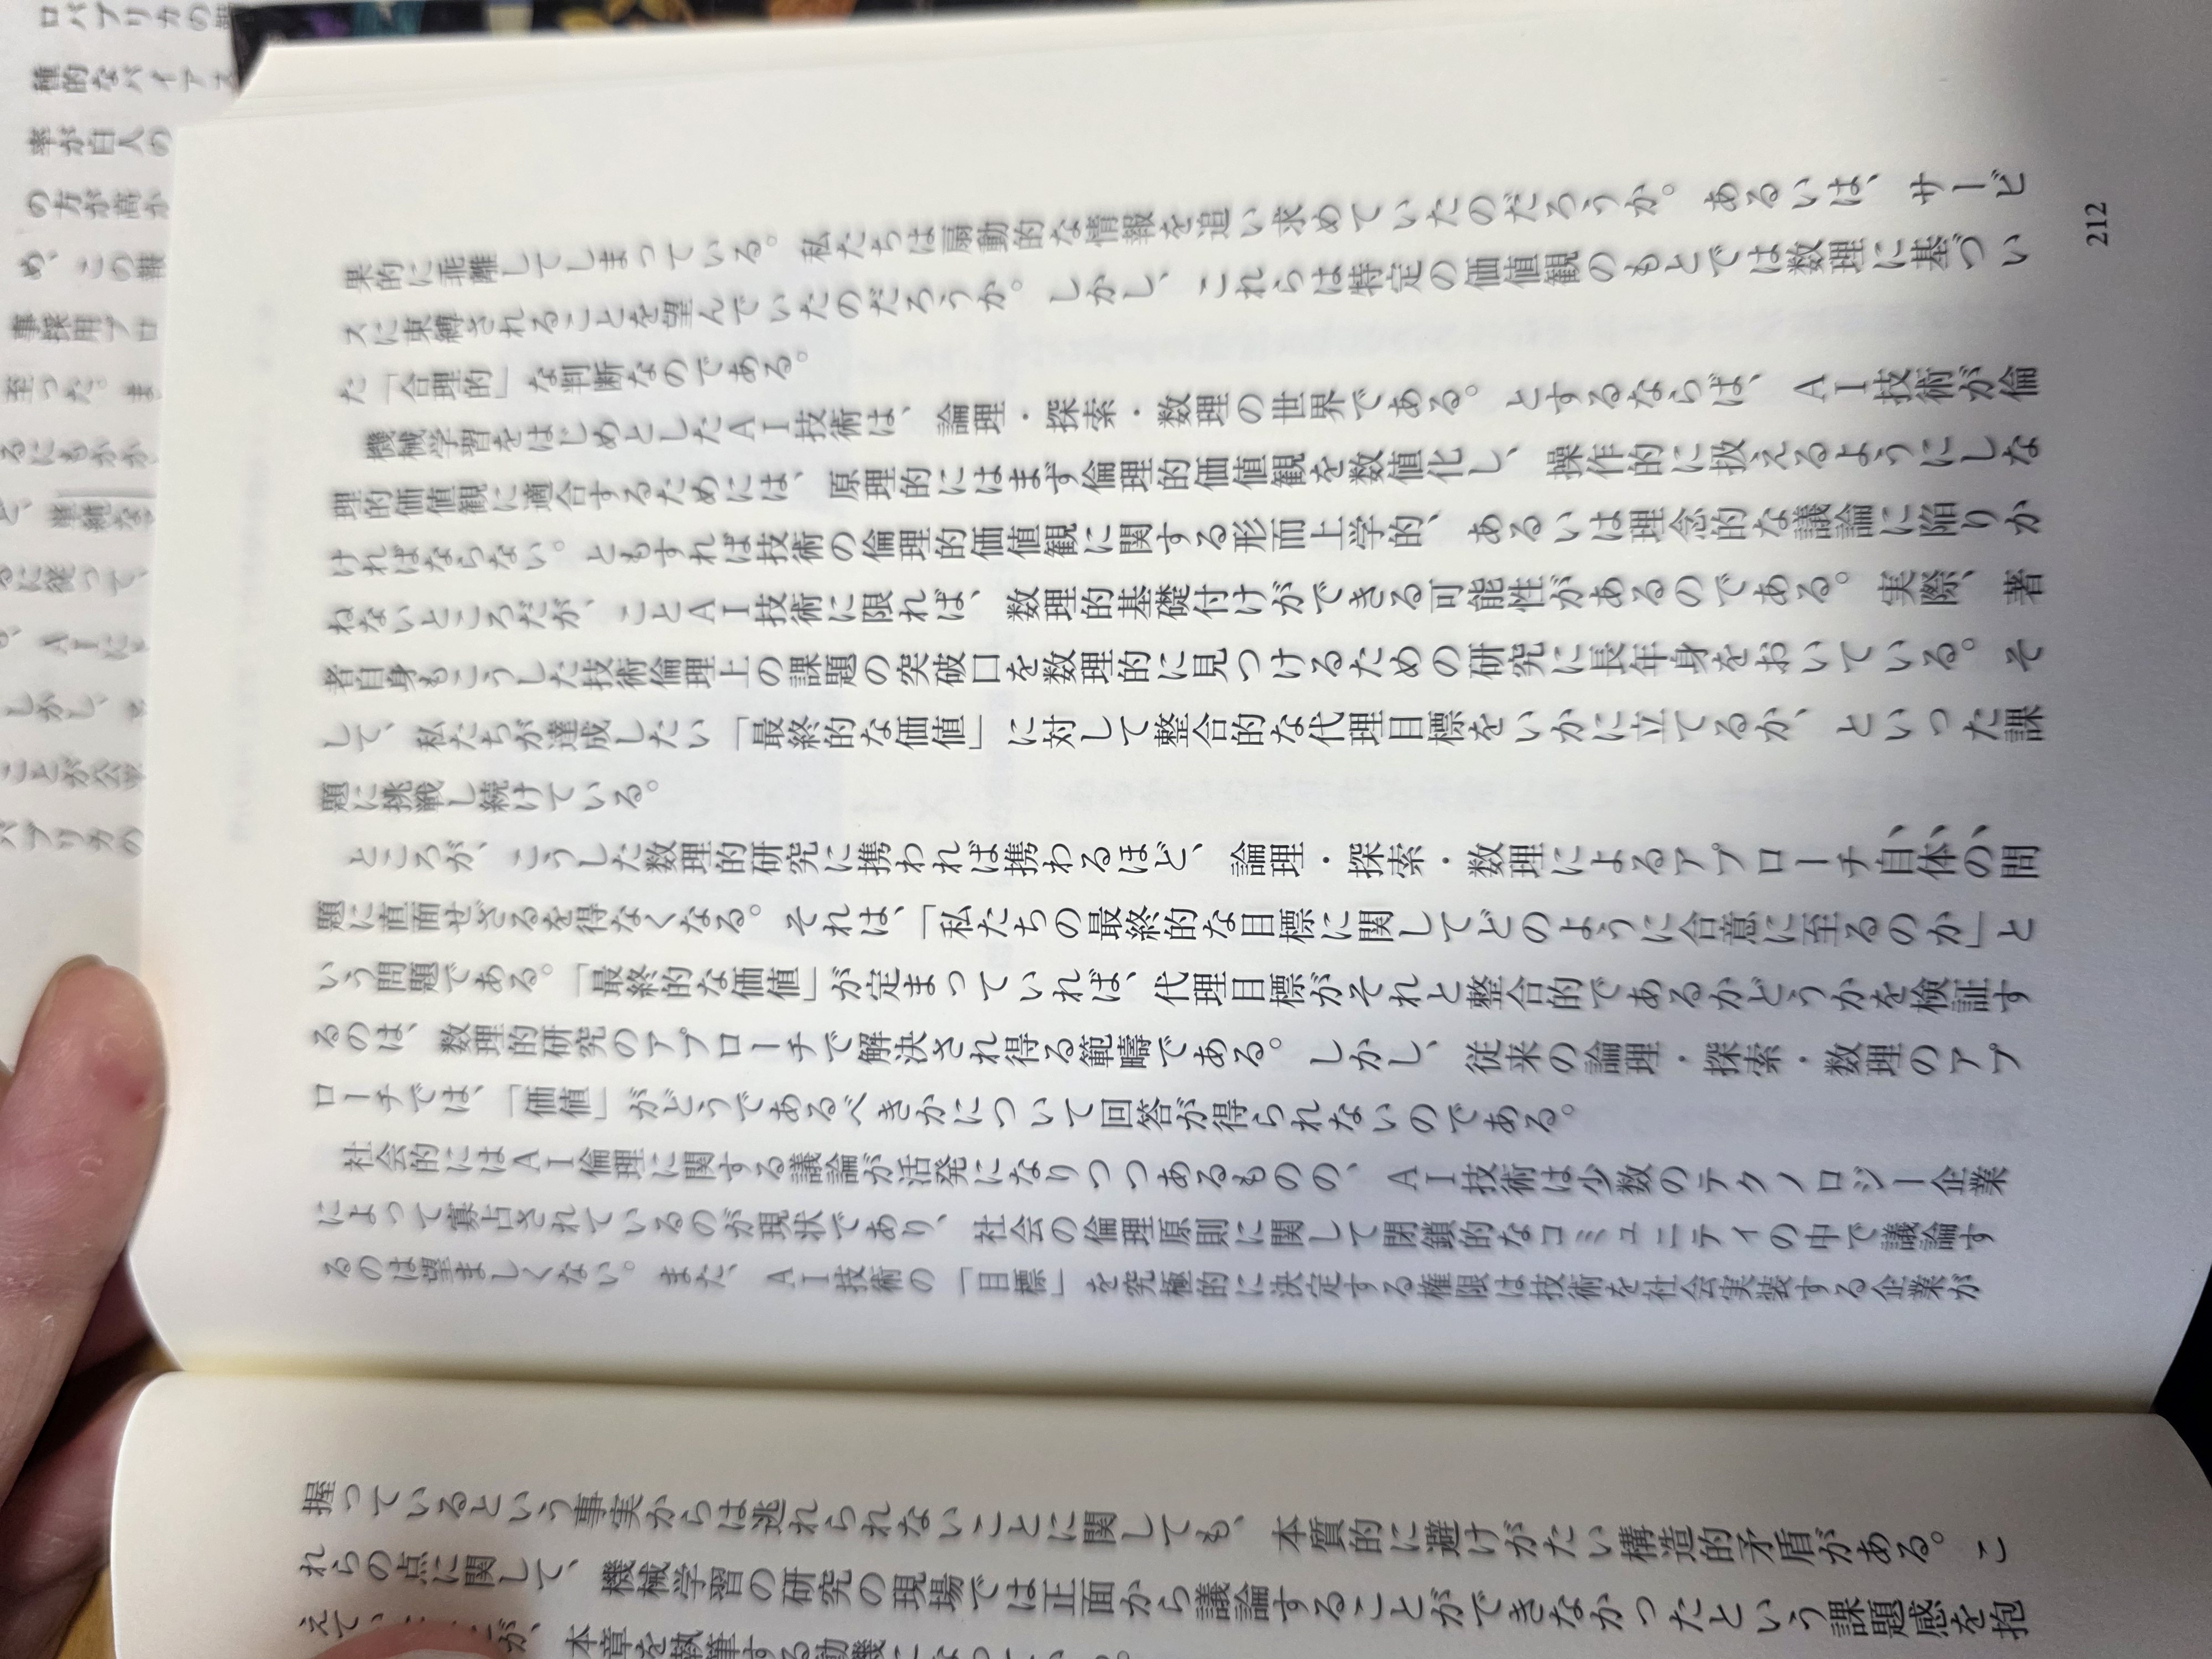 ロパブリカの
種的なバイアス
率が白人の
の方が高か
め、この
事採用プロ
至った。ま
るにもかか
に従って、
しかし、
パブリカの
果的に乖離してしまっている。私たちは扇動的な情報を追い求めていたのだろうか。あるいは、サービ
スに束縛されることを望んでいたのだろうか。しかし、これらは特定の価値観のもとでは数理に基づい
た「合理的」な判断なのである。
機械学習をはじめとしたAI技術は、論理・探索・数理の世界である。とするならば、AI技術が倫
理的価値観に適合するためには、原理的にはまず倫理的価値観を数値化し、操作的に扱えるようにしな
ければならない。ともすれば技術の倫理的価値観に関する形而上学的、あるいは理念的な議論に陥りか
ねないところだが、ことAI技術に限れば、数理的基礎付けができる可能性があるのである。実際、著
者自身もこうした技術倫理上の課題の突破口を数理的に見つけるための研究に長年身をおいている。そ
して、私たちが達成したい「最終的な価値」に対して整合的な代理目標をいかに立てるか、といった課
題に挑戦し続けている。
ところが、こうした数理的研究に携われば携わるほど、論理・探索・数理によるアプローチ自体の問
題に直面せざるを得なくなる。それは、「私たちの最終的な目標に関してどのように合意に至るのか」と
いう問題である。「最終的な価値」が定まっていれば、代理目標がそれと整合的であるかどうかを検証す
るのは、数理的研究のアプローチで解決され得る範疇である。しかし、従来の論理・探索・数理のアプ
ローチでは、「価値」がどうであるべきかについて回答が得られないのである。
社会的にはAI倫理に関する議論が活発になりつつあるものの、AI技術は少数のテクノロジー企業
によって寡占されているのが現状であり、社会の倫理原則に関して閉鎖的なコミュニティの中で議論す
るのは望ましくない。また、AI技術の「目標」を究極的に決定する権限は技術を社会実装する企業が
212
握っているという事実からは逃れられないことに関しても、本質的に避けがたい構造的矛盾がある。こ
れらの点に関して、機械学習の研究の現場では正面から議論することができなかったという課題感を抱
えて が、本章を執筆する動機になって